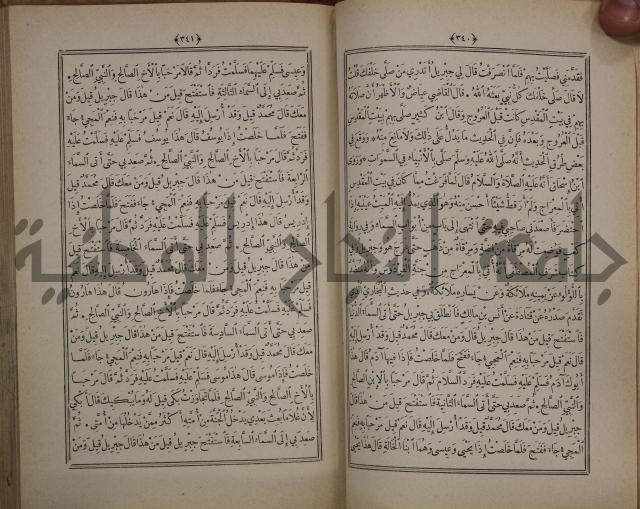 ﴿٣٤٠﴾
فقدمني فصليت بهم فلما انصرفت قال لي جبريل أتدري من صلى خلفك قلت
لا قال صلى خلفك كل نبي بعثه الله قال القاضي عياض والأظهر أن صلاته
بهم في بيت المقدس كانت قبل العروج وقال ابن كثير صلى بهم ببيت المقدس
قبل العروج وبعده فإن في الحديث ما يدل على ذلك ولا مانع منه ووقع في
بعض طرق الحديث أنه صلى الله عليه وسلم صلى بالأنبياء في السموات وروى
ابن إسحاق أنه عليه الصلاة والسلام قال لما فرغت مما كان في بيت المقدس
أتي بالمعراج ولم أر قط شيئا أحسن منه وهو الذي يمد إليه الميت عينيه إذا
احتضر فأصعدني صاحبي فيه حتى انتهى بي إلى باب من أبواب السماء وفي رواية
كعب فوضعت له مرقاة من فضة ومرقاة من ذهب حتى عرج هو وجبريل وفي
أتي بالمعراج من جنة الفردوس
باللؤلؤ عن يمينه ملائكة وعن يساره ملائكة وفي حديث البخاري الذي
تقدم صدره عن قتادة عن أنس بن مالك فانطلق بي جبريل حتى أتى السماء الدنيا
فاستفتح قيل من هذا قال جبريل قيل ومن معك قال محمد قيل وقد أرسل إليه
قال نعم قيل مرحبا به فنعم المجيء جاء ففتح فلما خلصت فإذا فيها آدم قال هذا
أبوك آدم فسلم عليه فسلمت عليه فرد السلام ثم قال مرحبا بالابن الصالح
والنبي الصالح ثم صعد بي حتى أتى السماء الثانية فاستفتح قيل من هذا قال
جبريل قيل ومن معك قال محمد قيل وقد أرسل إليه قال نعم قيل مرحبا به فنعم
المجيء جاء ففتح فلما خلصت إذا يحيى وعيسى وهما ابنا الخالة قال هذا يحيى
﴿٣٤١﴾
وعيسى فسلم عليهما فسلمت فردا ثم قالا مرحبا بالأخ الصالح والنبي الصالح
ثم صعد بي إلى السماء الثالثة فاستفتح قيل من هذا قال جبريل قيل ومن
معك قال محمد قيل وقد أرسل إليه قال نعم قيل مرحبا به فنعم المجيء جاء
ففتح فلما خلصت إذا يوسف قال هذا يوسف فسلم عليه فسلمت عليه
فرد ثم قال مرحبا بالأخ الصالح والنبي الصالح ثم صعد بي حتى أتى السماء
الرابعة فاستفتح قيل من هذا قال جبريل قيل ومن معك قال محمد قيل
وقد أرسل إليه قال نعم قيل مرحبا به فنعم المجيء جاء ففتح فلما خلصت إذا
إدريس قال هذا إدريس فسلم عليه فسلمت عليه فرد ثم قال مرحبا بالأخ
الصالح والنبي الصالح ثم صعد بي حتى أتى السماء الخامسة فاستفتح قيل
من هذا قال جبريل قيل ومن معك قال محمد قيل وقد أرسل إليه قال نعم
قيل مرحبا به فنعم المجيء جاء فلما خلصت فإذا هارون قال هذا هارون
فسلم عليه فسلمت عليه فرد ثم قال مرحبا بالأخ الصالح والنبي الصالح ثم
صعد بي حتى أتى السماء السادسة فاستفتح قيل من هذا قال جبريل قيل ومن
معك قال محمد قيل وقد أرسل إليه قال نعم قيل مرحبا به فنعم المجيء جاء فلما
خلصت فإذا موسى قال هذا موسى فسلم عليه فسلمت عليه فرد ثم قال مرحبا
بالأخ الصالح والنبي الصالح فلما تجاوزت بكى قيل له وما يبكيك قال أبكي
لأن غلاما بعث بعدي يدخل الجنة من أمته أكثر ممن يدخلها من أمتي ثم
صعد بي إلى السماء السابعة فاستفتح جبريل قيل من هذا قال جبريل قيل ومن
جامعة النجاح الوطنية